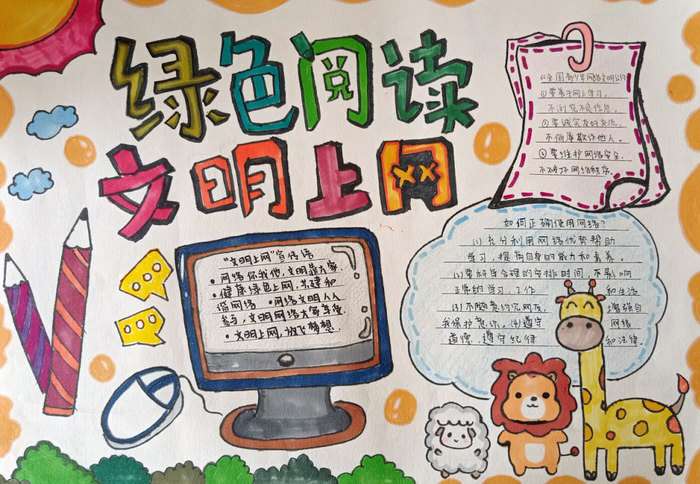 绿色阅读
文明上网
《全国青少年网络文明公约》
①要善于网上学习,
不浏览不良信息。
②要诚实友好交流,
不侮辱欺诈他人。
③要维护网络安全,
不破坏网络秩序。
"文明上网"宣传语
网络你我他,文明靠大家
健康绿色上网,共建和
谐网络 网络文明人人
参与,文明网络大家享受
文明上网,放飞梦想
如何正确使用网络?
(1)充分利用网络优势帮助
学习,提高自身的能力和素养。
时间,不影响
正常的学习、工作 和生活
网友, 增强自
我保护意识。(4)遵守 网络
道德,遵守纪律 和法律